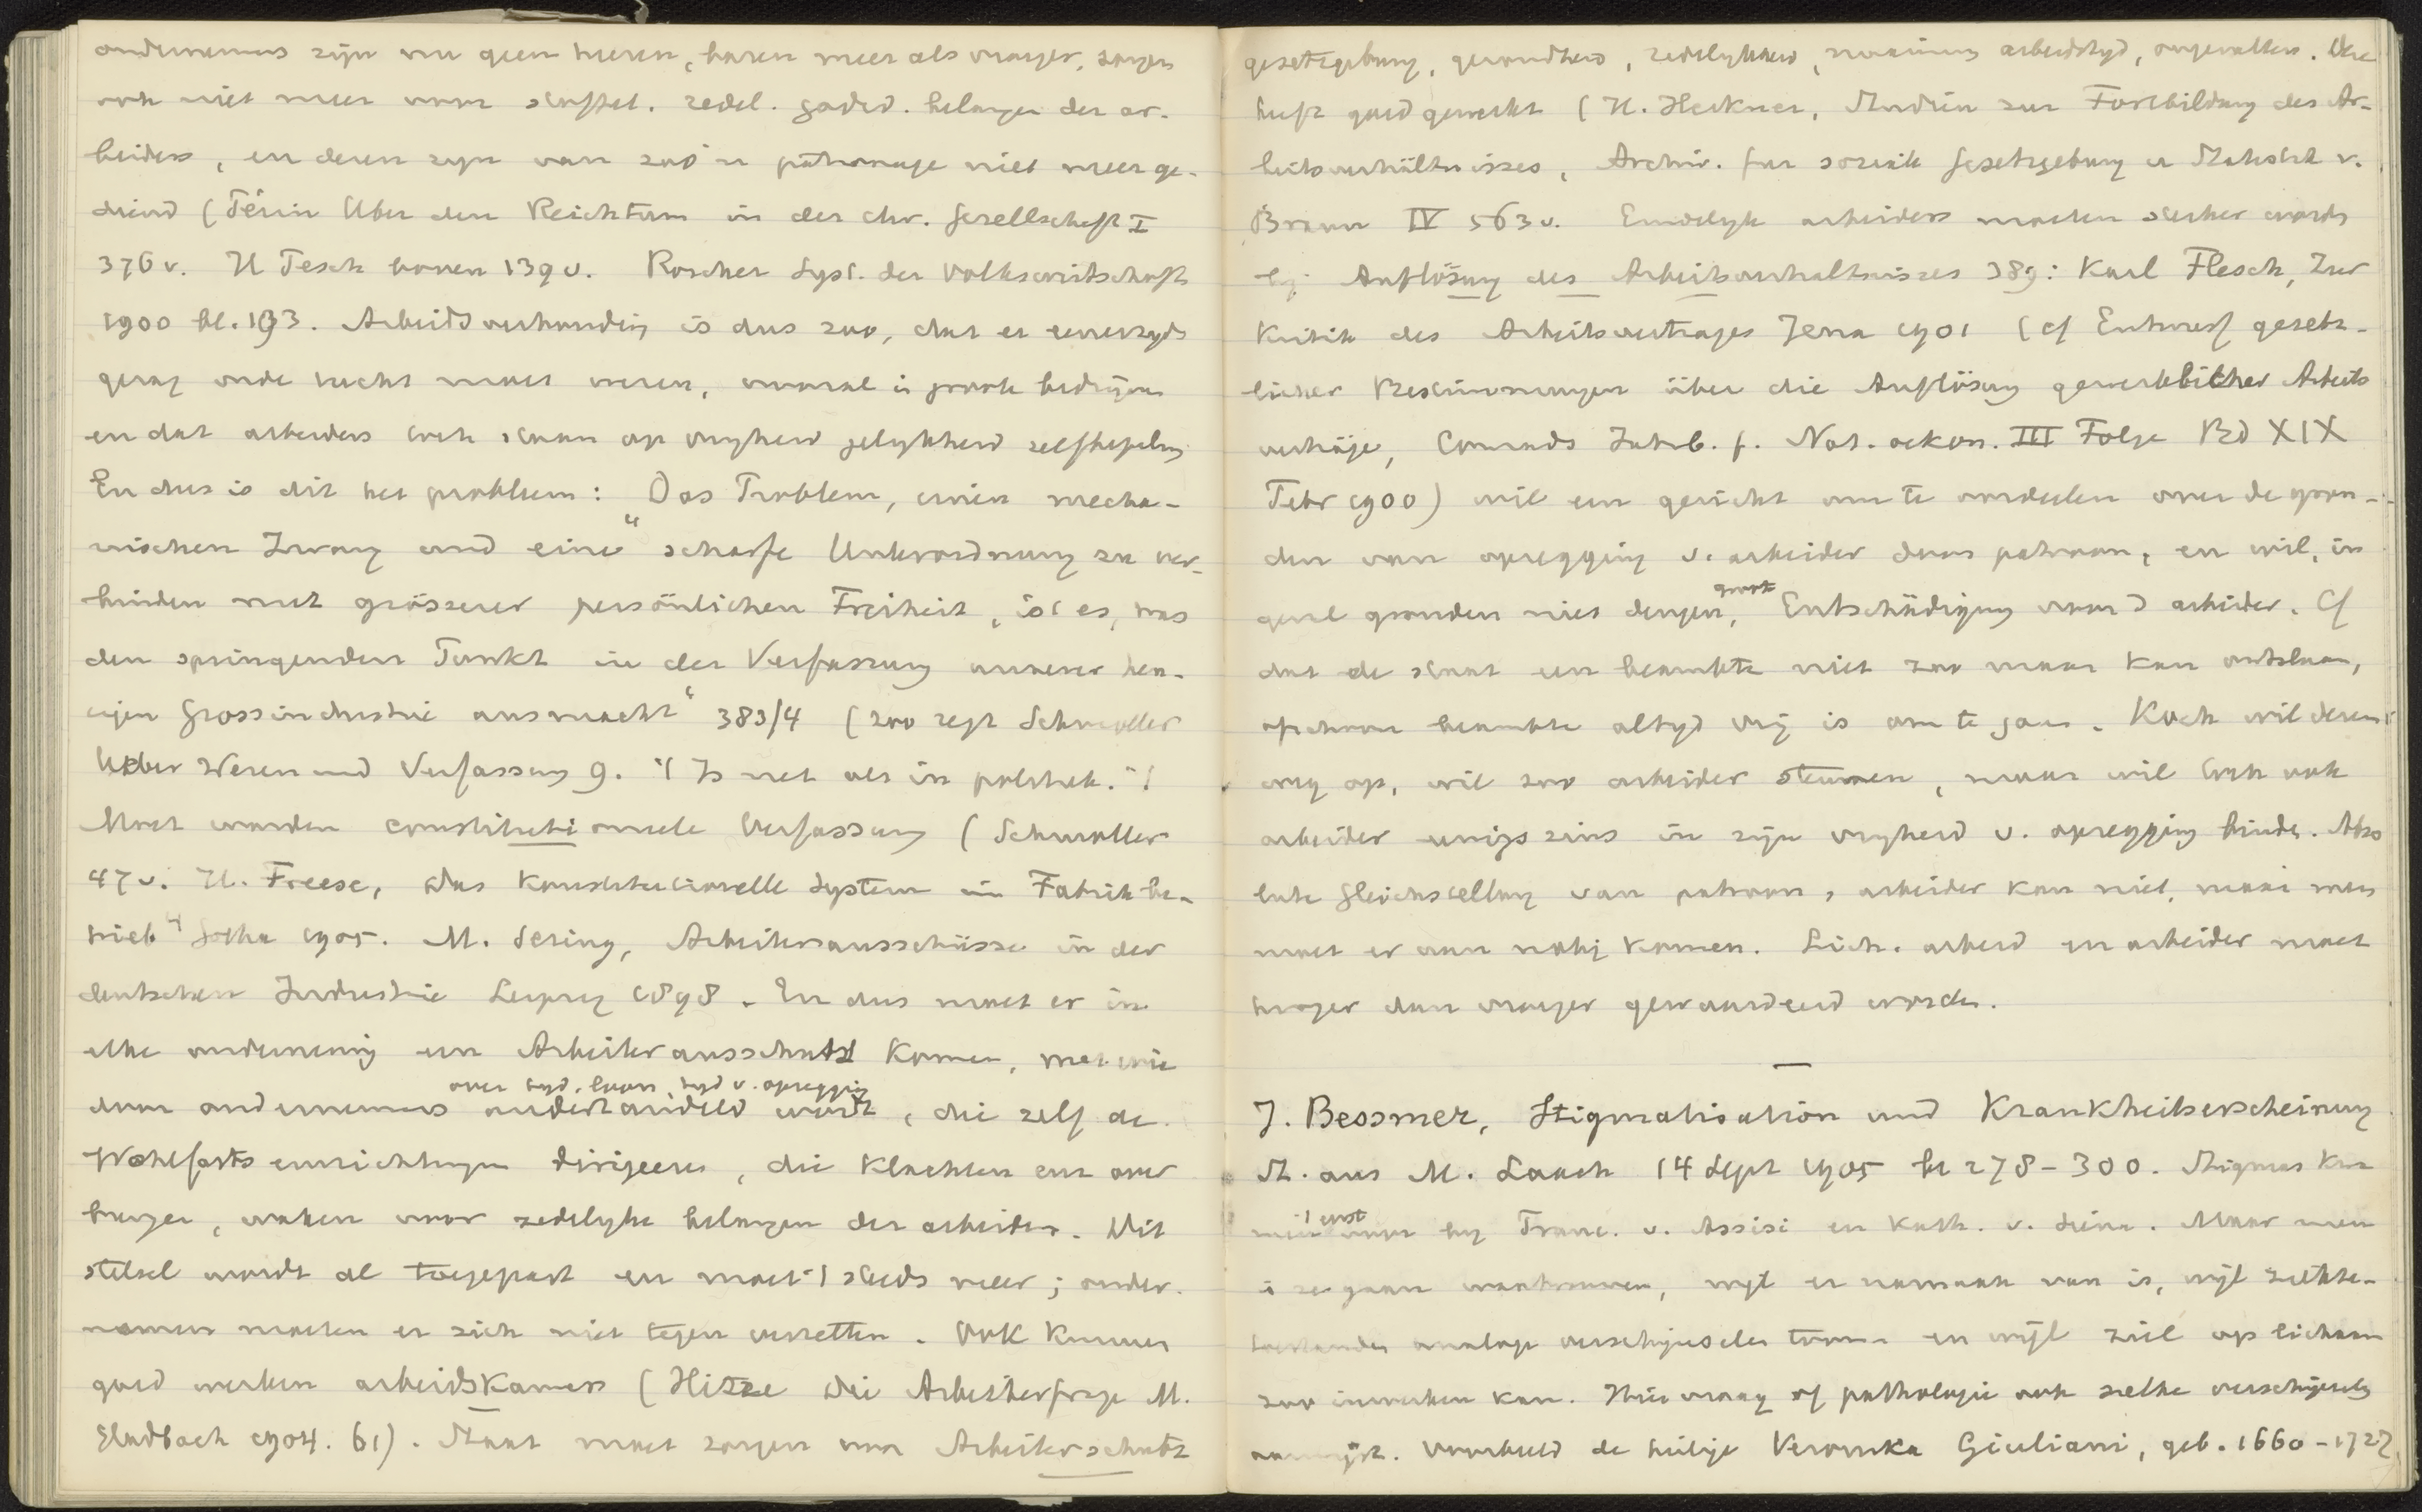 ondernemers zijn nu geen heeren, bazen meer als vroeger, zorgen
ook niet meer voor stoffel. zedel. godsd. belangen der ar-
beiders, en dezen zijn van zoo'n patronage niet meer ge-
diend (Périn Uber den Reichtum in der chr. Gesellschaft I
376 v. H Pesch boven 139 v. Roscher Syst. der Volkswirtschaft
1900 bl. 193. Arbeidsverhouding is dus zoo, dat er eenerzyds
gezag orde tucht moet wezen, vooral in groote bedrijven
en dat arbeiders toch staan op vryheid gelykheid zelfbepaling
En dus is dit het probleem: Das Problem, einen mecha-
nischen Zwang und eine "scharfe Unterordnung zu ver-
binden mit grösserer persönlichen Freiheit, ist es, was
den springenden Punkt in der Verfassung unserer heu-
tigen Grossindustrie ausmacht" 383/4 (zoo zegt Schmoller
Ueber Wesen und Verfassung 9. 't Is net als in politiek. 't
Moet worden constitutionele Verfassung (Schmoller
47 v. H. Freese, das Konstitutionelle System im Fabrikbe-
trieb" Gotha 1905. M. Sering, Arbeiterausschüsse in der
deutschen Industrie Leipzig 1898. En dus moet er in
elke onderneming een Arbeiterausschuss komen, met wie
over tyd, loon, tyd v. opzegging
door ondernemers onderhandeld wordt, die zelf de
Wohlfarts einrichtungen dirigeeren, die klachten enz over
brengen, waken voor zedelyke belangen der arbeiders. Dit
stelsel wordt al toegepast en moet 't steeds meer; onder-
nemers moeten er zich niet tegen verzetten. Ook kunnen
goed werken arbeidskamers (Hitze Die Arbeiterfrage M.
Gladbach 1904. 61). Staat moet zorgen voor Arbeiterschutz
gesetzgebung, gezondheid, zedelykheid, maximum arbeidstyd, ongevallen. Deze
heeft goed gewerkt (H. Herkner, Studien zur Fortbildung des Ar-
beitsverhältnisses, Archiv. fur soziale Gesetzgebung u Statistik v.
Braun IV 563 v. Eindelyk arbeiders moeten sterker worden
by Auflösung des Arbeitsverhaltnisses 389: Karl Flesch, Zur
Kritik des Arbeitsvertrages Jena 1901 (cf Entwurf gesetz-
licher Bestimmungen über die Auflösung gewerblicher Arbeits
verträge, Conrads Jahrb. f. Nat. oekon. III Folge Bd XIX
Febr 1900) wil een gericht om te oordeelen over de gron-
den van opzegging v. arbeider door patroon, en wil, in
groote
geval gronden niet deugen, Entschädigung voor d arbeider. Cf
dat de staat een beambte niet zoo maar kan ontslaan,
ofschoon beambte altyd vrij is om te gaan. Koch wil dezen
weg op, wil zoo arbeider steunen, maar wil toch ook
arbeider eenigszins in zijn vryheid v. opzegging binden. Abso
lute Gleichstellung van patroon, arbeider kan niet, maar men
moet er aan naby komen. Lich. arbeid en arbeider moet
hooger dan vroeger gewaardeerd worden.
J. Bessmer, Stigmatisation und Krankheitserscheinung
St. aus M. Laach 14 Sept 1905 bl 278-300. Stigmas
't eerst
voor by Franc. v. Assisi en Kath. v. Siena. Maar men
is ze gaan wantrouwen, wijl er namaak van is, wijl ziekte-
toestanden analoge verschijnselen toonen en wijl ziel op lichaam
zoo inwerken kan. Hier vraag of pathologie ook zulke verschijnselen
aanwijst. Voorbeeld de heilige Veronika Giuliani, geb. 1660-1727